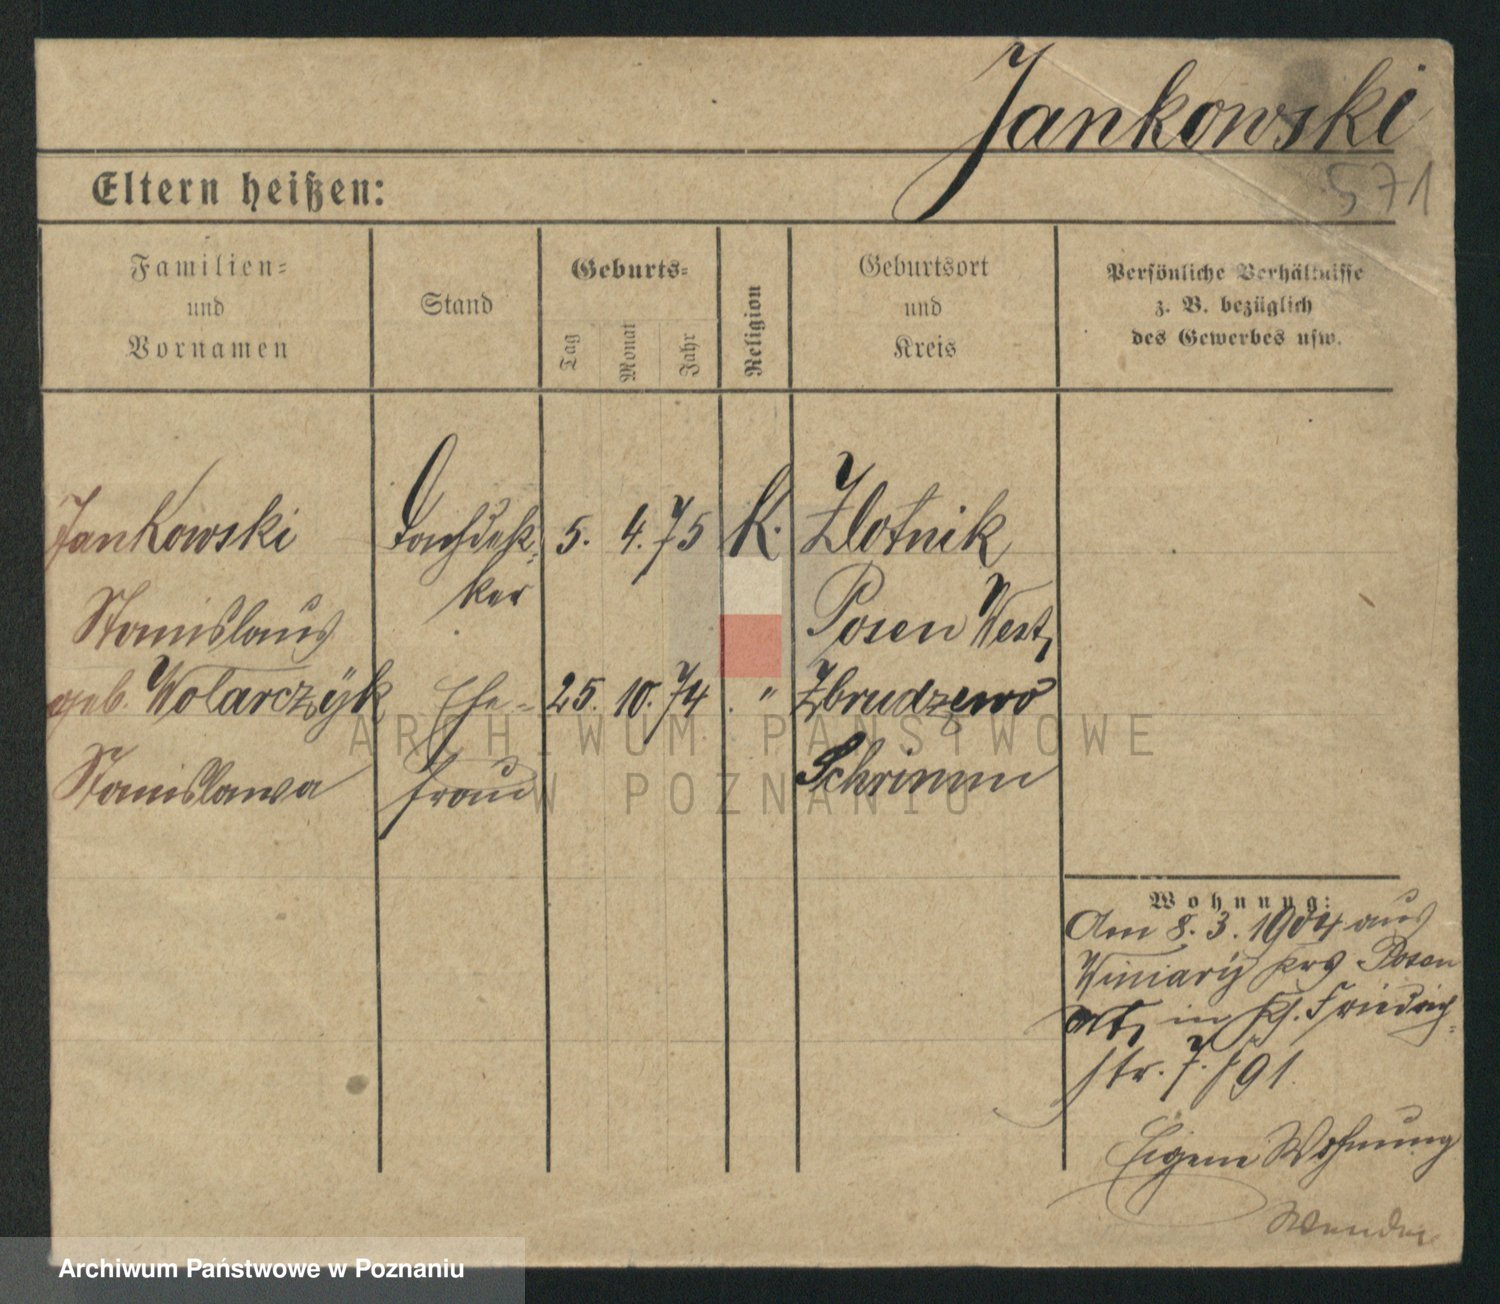 Jankowski
571
Eltern heißen:
Familien-
und
Vornamen
Stand
Geburts-
Tag
Monat
Jahr
Religion
Geburtsort
und
Kreis
Persönliche Verhältnisse
z. B. bezüglich
des Gewerbes usw.
Jankowski Dachdek- 5. 4. 75 K. Zlotnik
ker
Stanislaus Posen West,
geb. Wolarczÿk Ehe- 25. 10. 74 " Zbrudzewo
Stanislawa frau Schrimm
ARCHIWUM PAŃSTWOWE
W POZNANIU
Wohnung:
Am 8. 3. 1904 aus
Winiarÿ Krs Posen
Ost, in Friedrich-
str. 7.
Eigene Wohnung
Archiwum Państwowe w Poznaniu